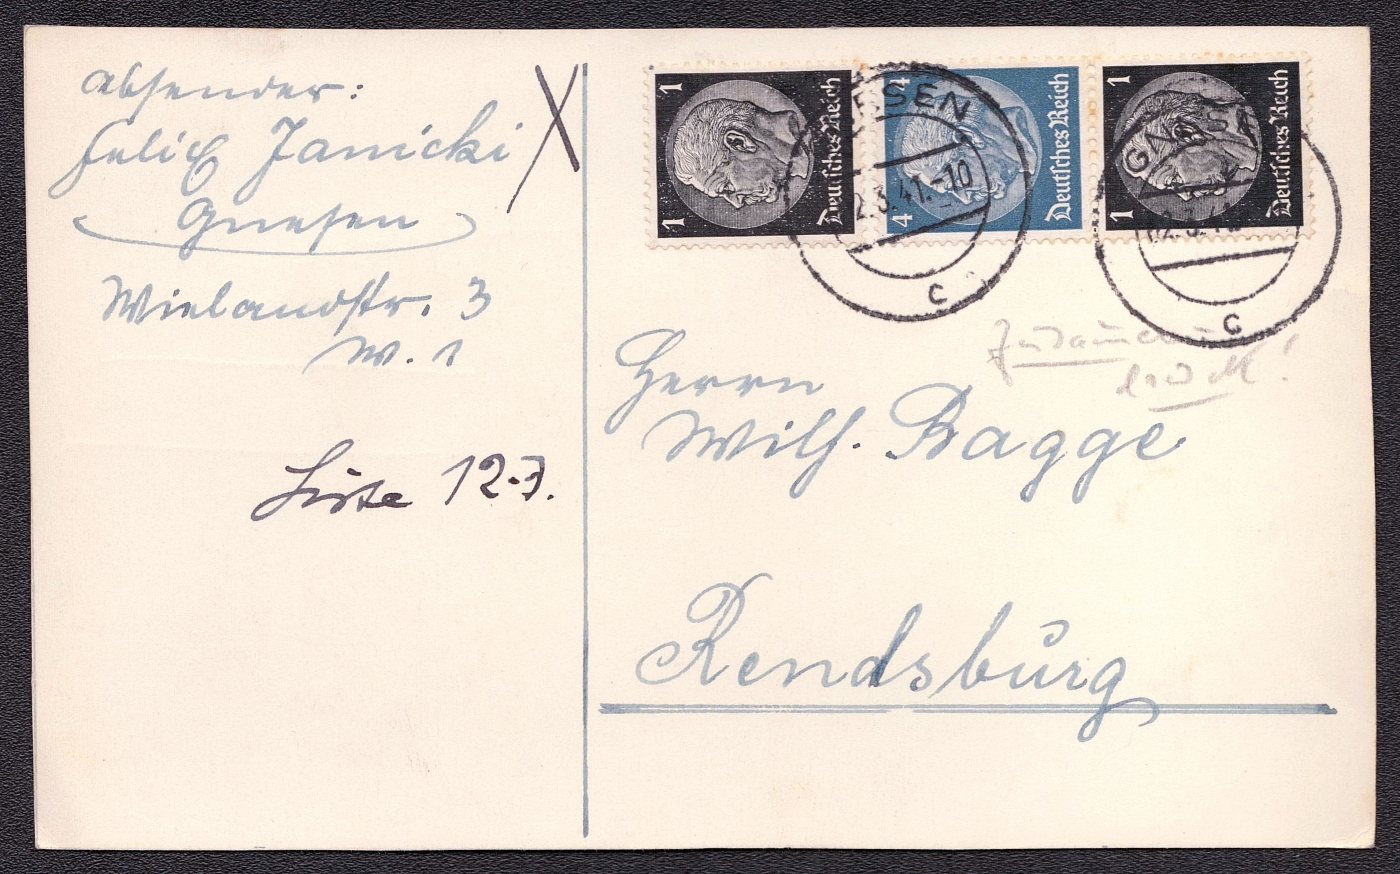 Absender:
Felix Janicki
Gnesen
Wielandstr. 3
W. 1
Liste 12-7.
1
1
Deutsches Reich
4
4
Deutsches Reich
1
1
Deutsches Reich
GNESEN
2.3.41.-10
c
GNESEN
c
Herrn
Wilh. Bagge
Rendsburg